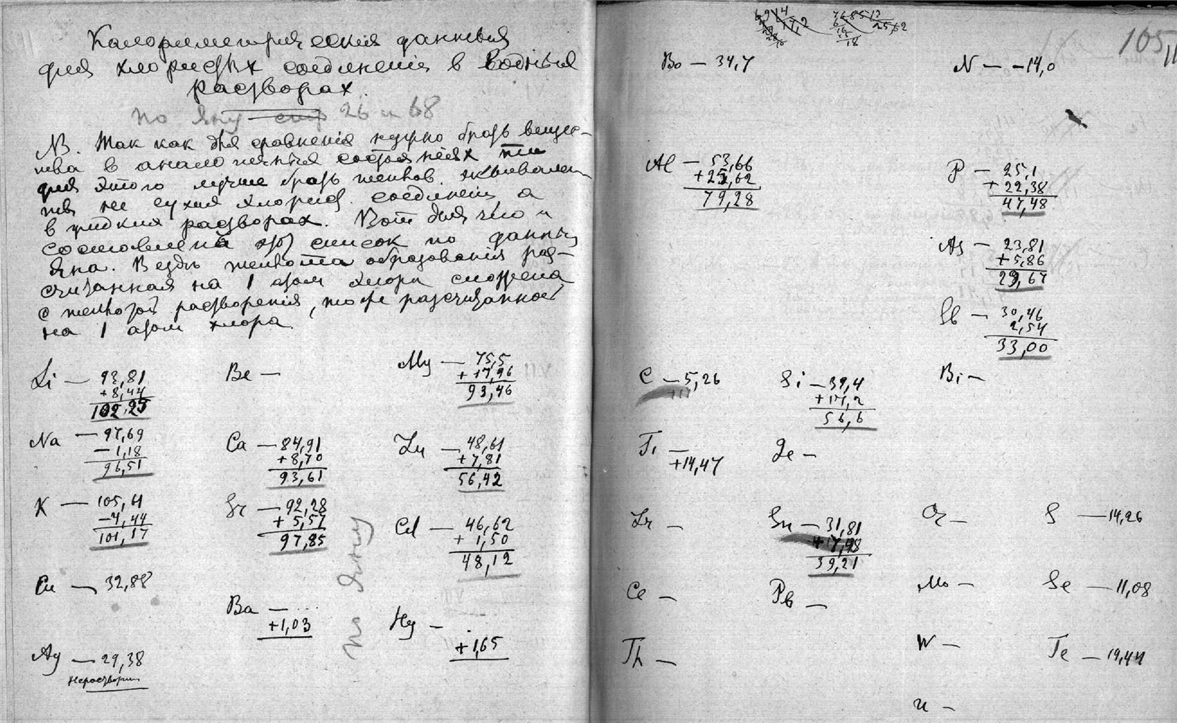 Калориметрическія данныя
для хлористыхъ соединеній в водныхъ
растворах.
по Яну стр 26 и 68
NB. Так как для сравненія нужно брать вещес-
тва в аналогичныхъ состояніях то
для этого лучше брать теплов. эквивален
не сухих хлорист. соединеній а
в жидких растворах. Вот для чего и
составлен этот список по данным
Яна. Вездѣ теплота образованія рас-
считанная на 1 атом хлора сложена
с теплотой растворенія, тоже разсчитанной
на 1 атом хлора
Li — 93,81
+8,44
102,25
Na — 97,69
—1,18
96,51
K — 105,61
—4,44
101,17
Cu — 32,88
Ag — 29,38
Нерастворим
Be —
Ca — 84,91
+8,70
93,61
Sr — 92,28
+5,57
97,85
Ba — ...
+1,03
Mg — 75,5
+17,96
93,46
Zn — 48,61
+7,81
56,42
Cd — 46,62
+1,50
48,12
Hg — ...
+1,65
по Яну
105
Bo — 34,7
N — -14,0
Al — 53,66
+25,62
79,28
P — 25,1
+22,38
47,48
As — 23,81
+5,86
29,67
Sb — 30,46
2,54
33,00
Bi —
C — 5,26
Si — 39,4
+17,2
56,6
Ti —
+14,47
Ge —
Zr —
Sn — 31,81
+7,48
39,21
Cr —
S — 14,26
Ce —
Pb —
Mo —
Se — 11,08
Th —
W —
Te — 19,44
U —